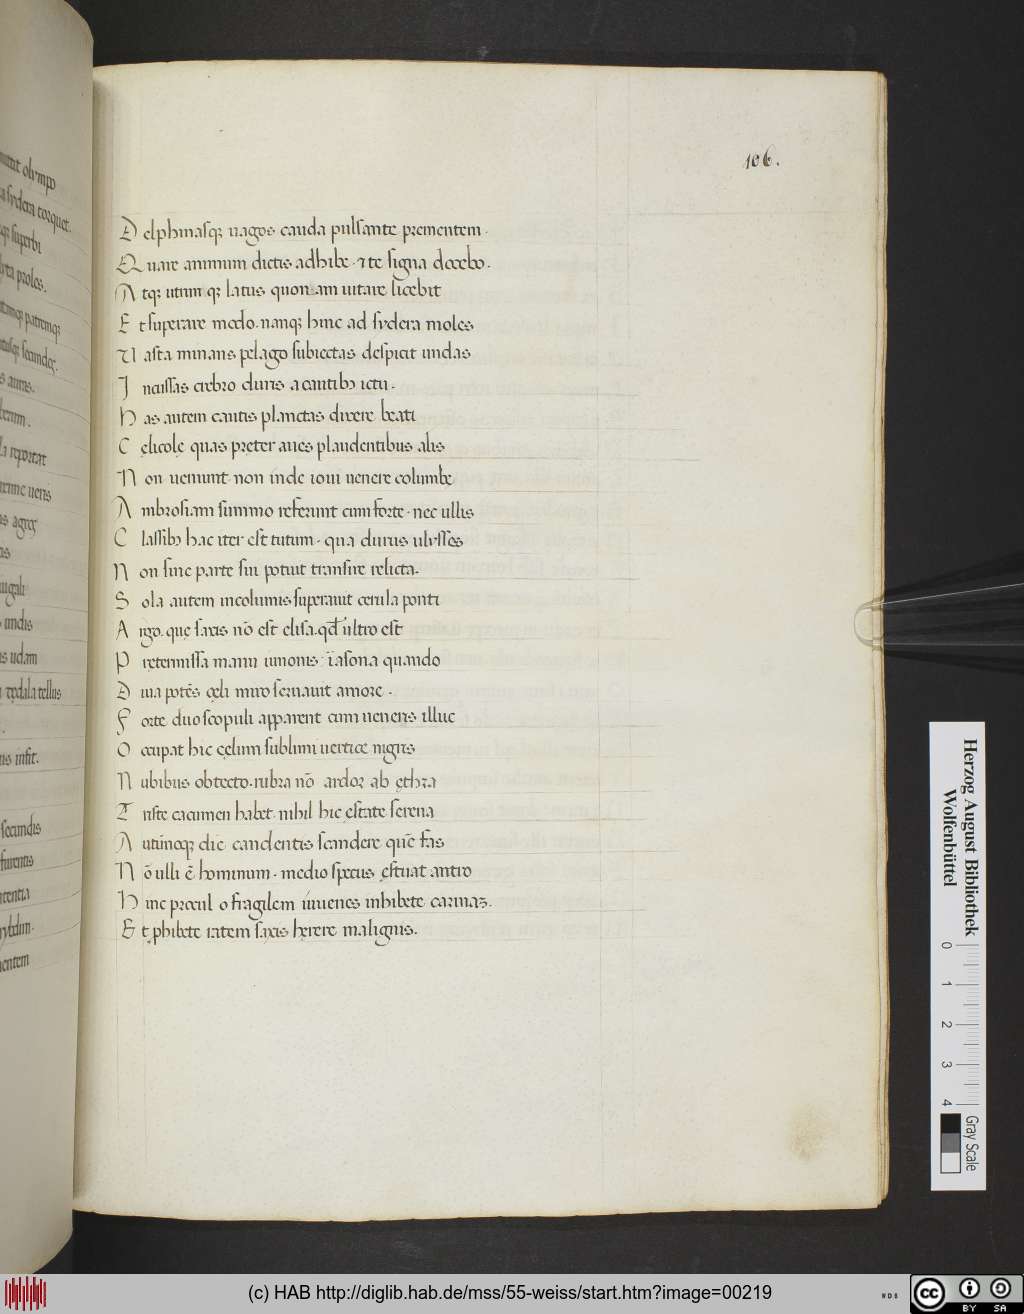 106.
Delphinasq; uagos cauda pulsante prementem.
Quare animum dictis adhibe. 7 te signa docebo.
Atq; utrum q; latus quoniam uitare licebit
Et superare modo. nanq; hinc ad sydera moles
Vasta minans pelago subiectas despicit undas
Incussas crebro duris a cautib; ictu.
Has autem cautis planctas dixere beati
Cęlicolę quas preter aues plaudentibus alis
Non ueniunt. non inde ioui uenere columbę
Ambrosiam summo referunt cum forte. nec ullis
Classib; hac iter est tutum. qua durus ulysses
Non sine parte sui potuit transire relicta.
Sola autem incolumis superauit cerula ponti
Argo. quę saxis nō est elisa. qđ ultro est
Pretermissa manu iunonis. iasona quando
Diua potēs cęli miro seruauit amore.
Forte duo scopuli apparent cum ueneris illuc
Occupat hic cęlum sublimi uertice nigris
Nubibus obtecto. rubra nō ardor ab ęthra
Triste cacumen habet. nihil hic ęstate serena
Autūnoq; die candentis scandere quē fas
Nō ulli ē hominum. medio specus ęstuat antro
Hinc procul o fragilem iuuenes inhibete carinaz.
Et ꝓhibete ratem saxis hęrere malignis.
olympo
sydera torquet.
superbi
proles.
patremq;
auras.
reportat
ueris
undis
udam
dędala tellus
infit.
secundis
furentis
Herzog August Bibliothek
Wolfenbüttel
0 1 2 3 4
Gray Scale
(c) HAB http://diglib.hab.de/mss/55-weiss/start.htm?image=00219
WDB
cc BY SA